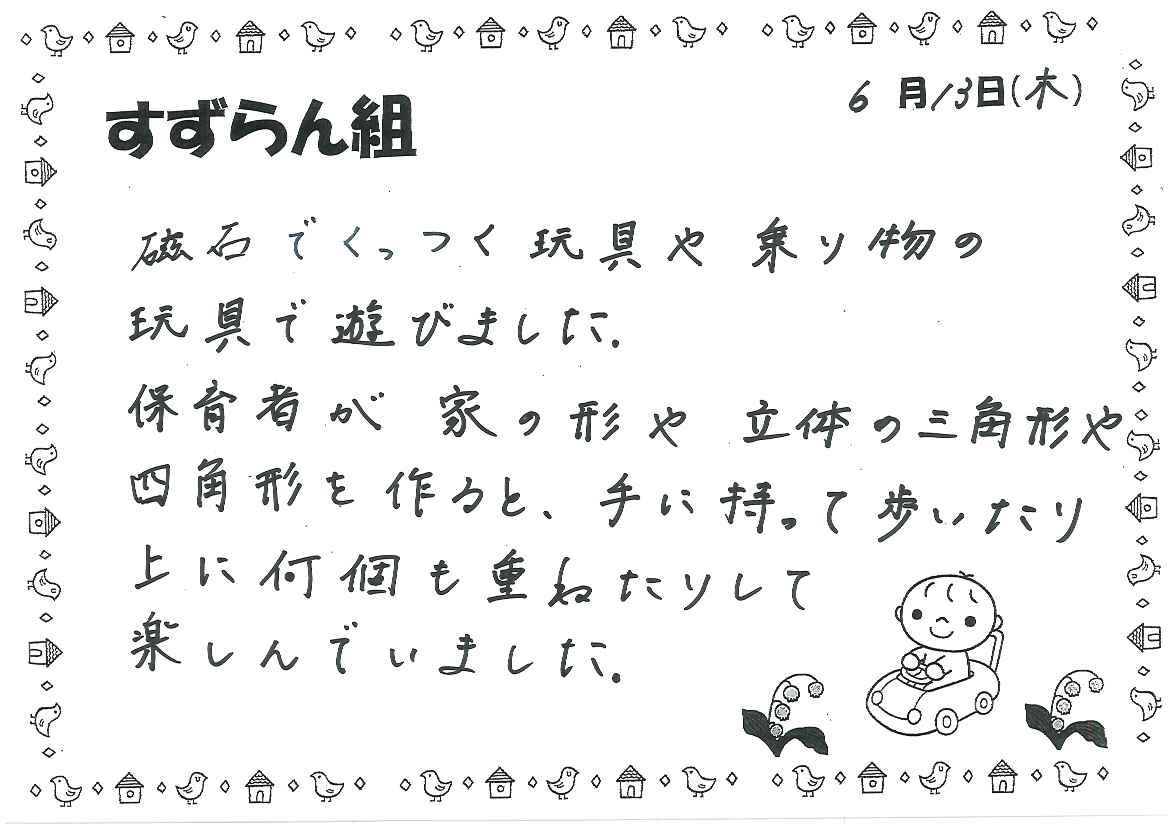 すずらん組
6月13日(木)
磁石でくっつく玩具や乗り物の
玩具で遊びました.
保育者が家の形や立体の三角形や
四角形を作ると、手に持って歩いたり
上に何個も重ねたりして
楽しんでいました.